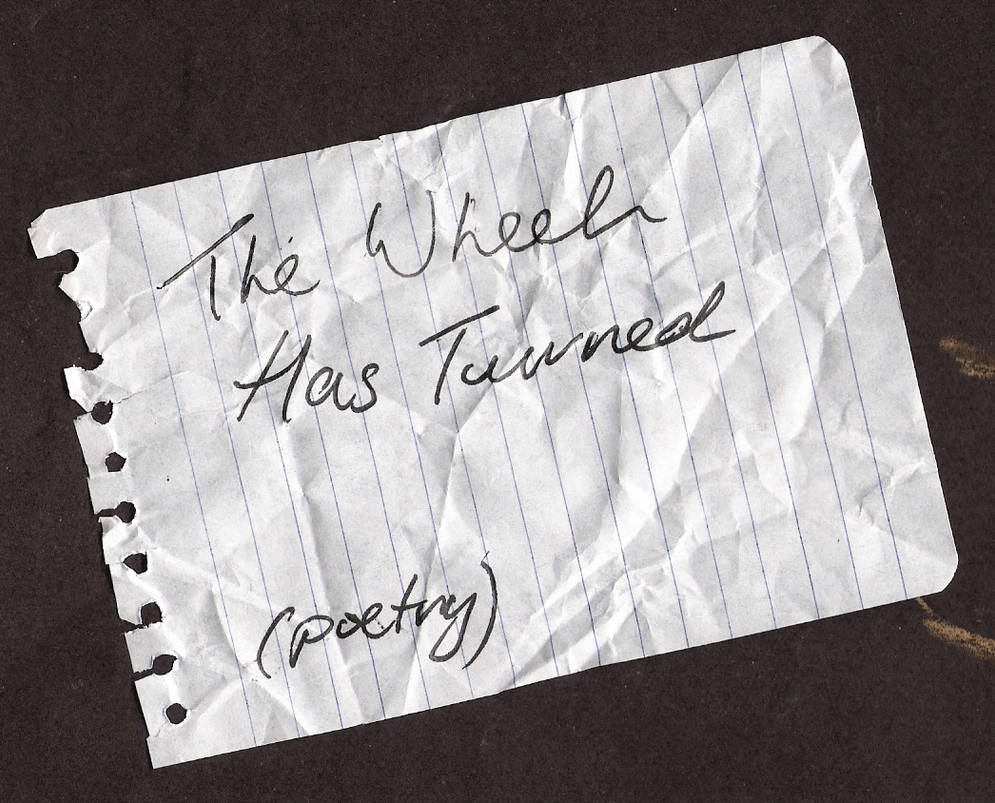 The Wheel
Has Turned
(poetry)